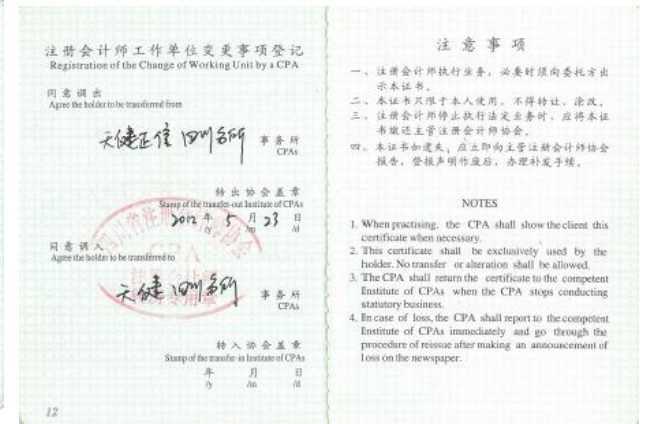 注册会计师工作单位变更事项登记
Registration of the Change of Working Unit by a CPA
同意调出
Agree the holder to be transferred from
天健正信四川分所
事务所
CPAs
转出协会盖章
Stamp of the transfer-out Institute of CPAs
2012年 5月 23日
/y /m /d
同意调入
Agree the holder to be transferred to
CPA
天健四川分所
事务所
CPAs
转入协会盖章
Stamp of the transfer-in Institute of CPAs
年 月 日
/y /m /d
12
注意事项
一、注册会计师执行业务，必要时须向委托方出
示本证书。
二、本证书只限于本人使用，不得转让、涂改。
三、注册会计师停止执行法定业务时，应将本证
书缴还主管注册会计师协会。
四、本证书如遗失，应立即向主管注册会计师协会
报告，登报声明作废后，办理补发手续。
NOTES
1. When practising, the CPA shall show the client this
certificate when necessary.
2. This certificate shall be exclusively used by the
holder. No transfer or alteration shall be allowed.
3. The CPA shall return the certificate to the competent
Institute of CPAs when the CPA stops conducting
statutory business.
4. In case of loss, the CPA shall report to the competent
Institute of CPAs immediately and go through the
procedure of reissue after making an announcement of
loss on the newspaper.